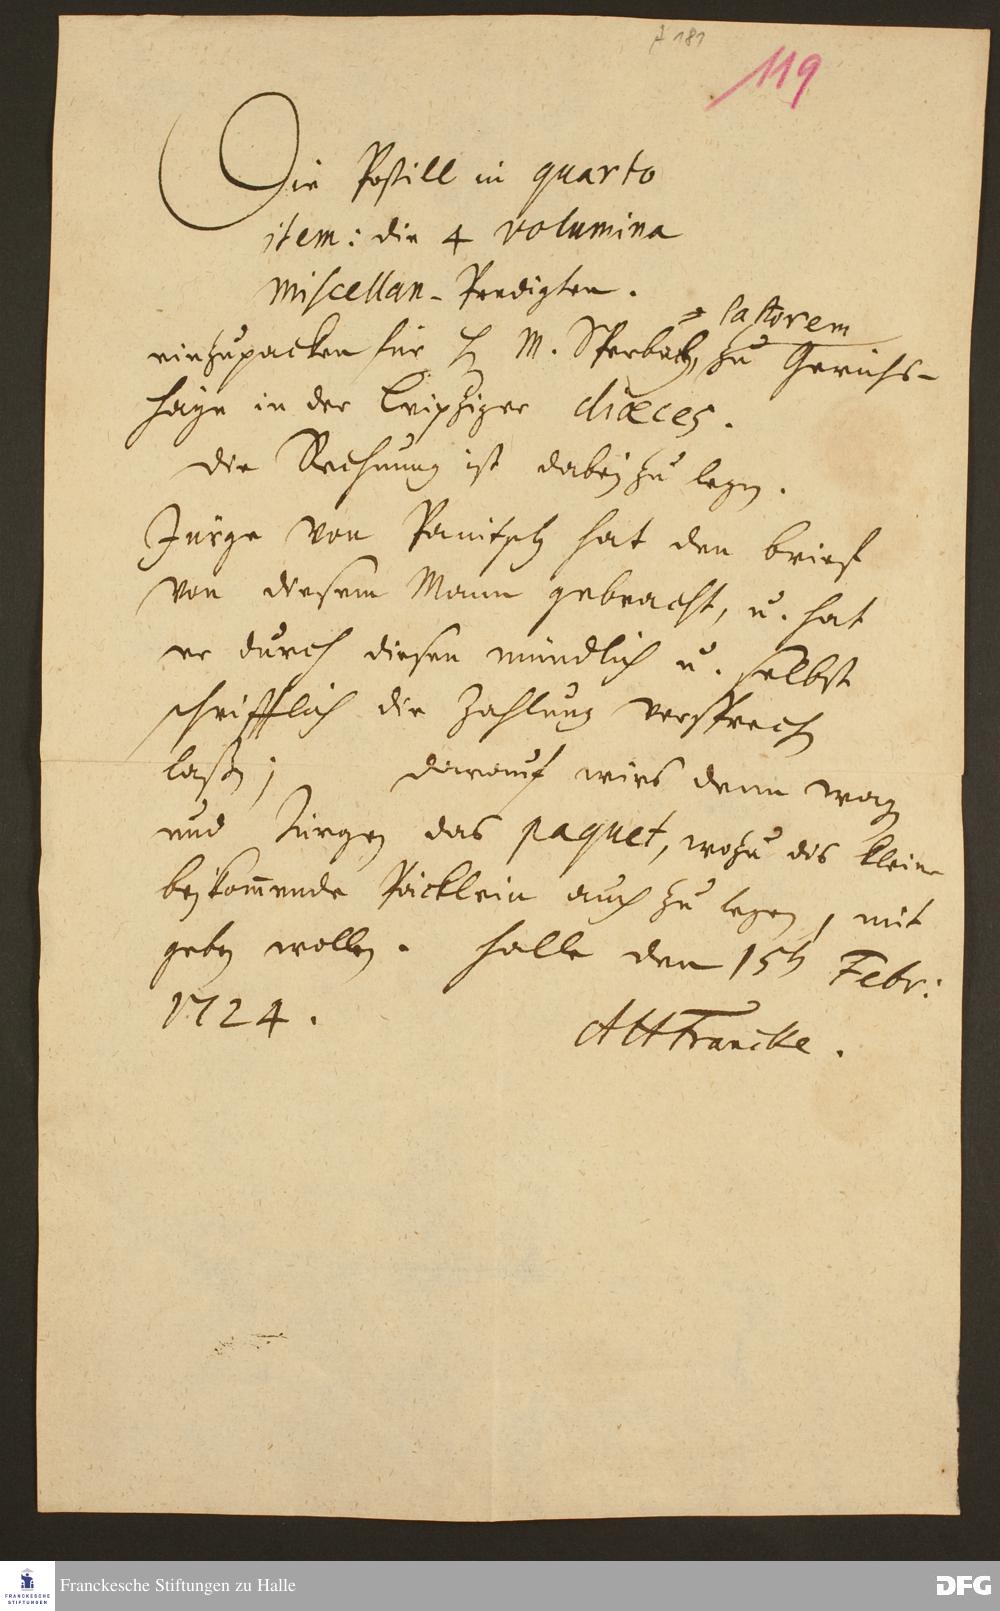 A 181
119
Die Postill in quarto
item: die 4 volumina
Miscellan-Predigten.
Pastorem
einzupacken für H. M. Sperbach, zu Gerichs-
hayn in der Leipziger diœces.
die Rechnung ist dabey zu legen.
Jürge von Panitzsch hat den brief
von diesem Mann gebracht, u. hat
er durch diesen mündlich u. selbst
schrifftlich die Zahlung versprechen
laßen; darauf wirs denn wagen
und Jürgen das paquet, wozu dis kleine
beykommende Päcklein auch zu legen, mit
geben wollen. Halle den 15t Febr:
1724. AHFrancke.
Franckesche Stiftungen zu Halle
FRANCKESCHE
STIFTUNGEN
DFG